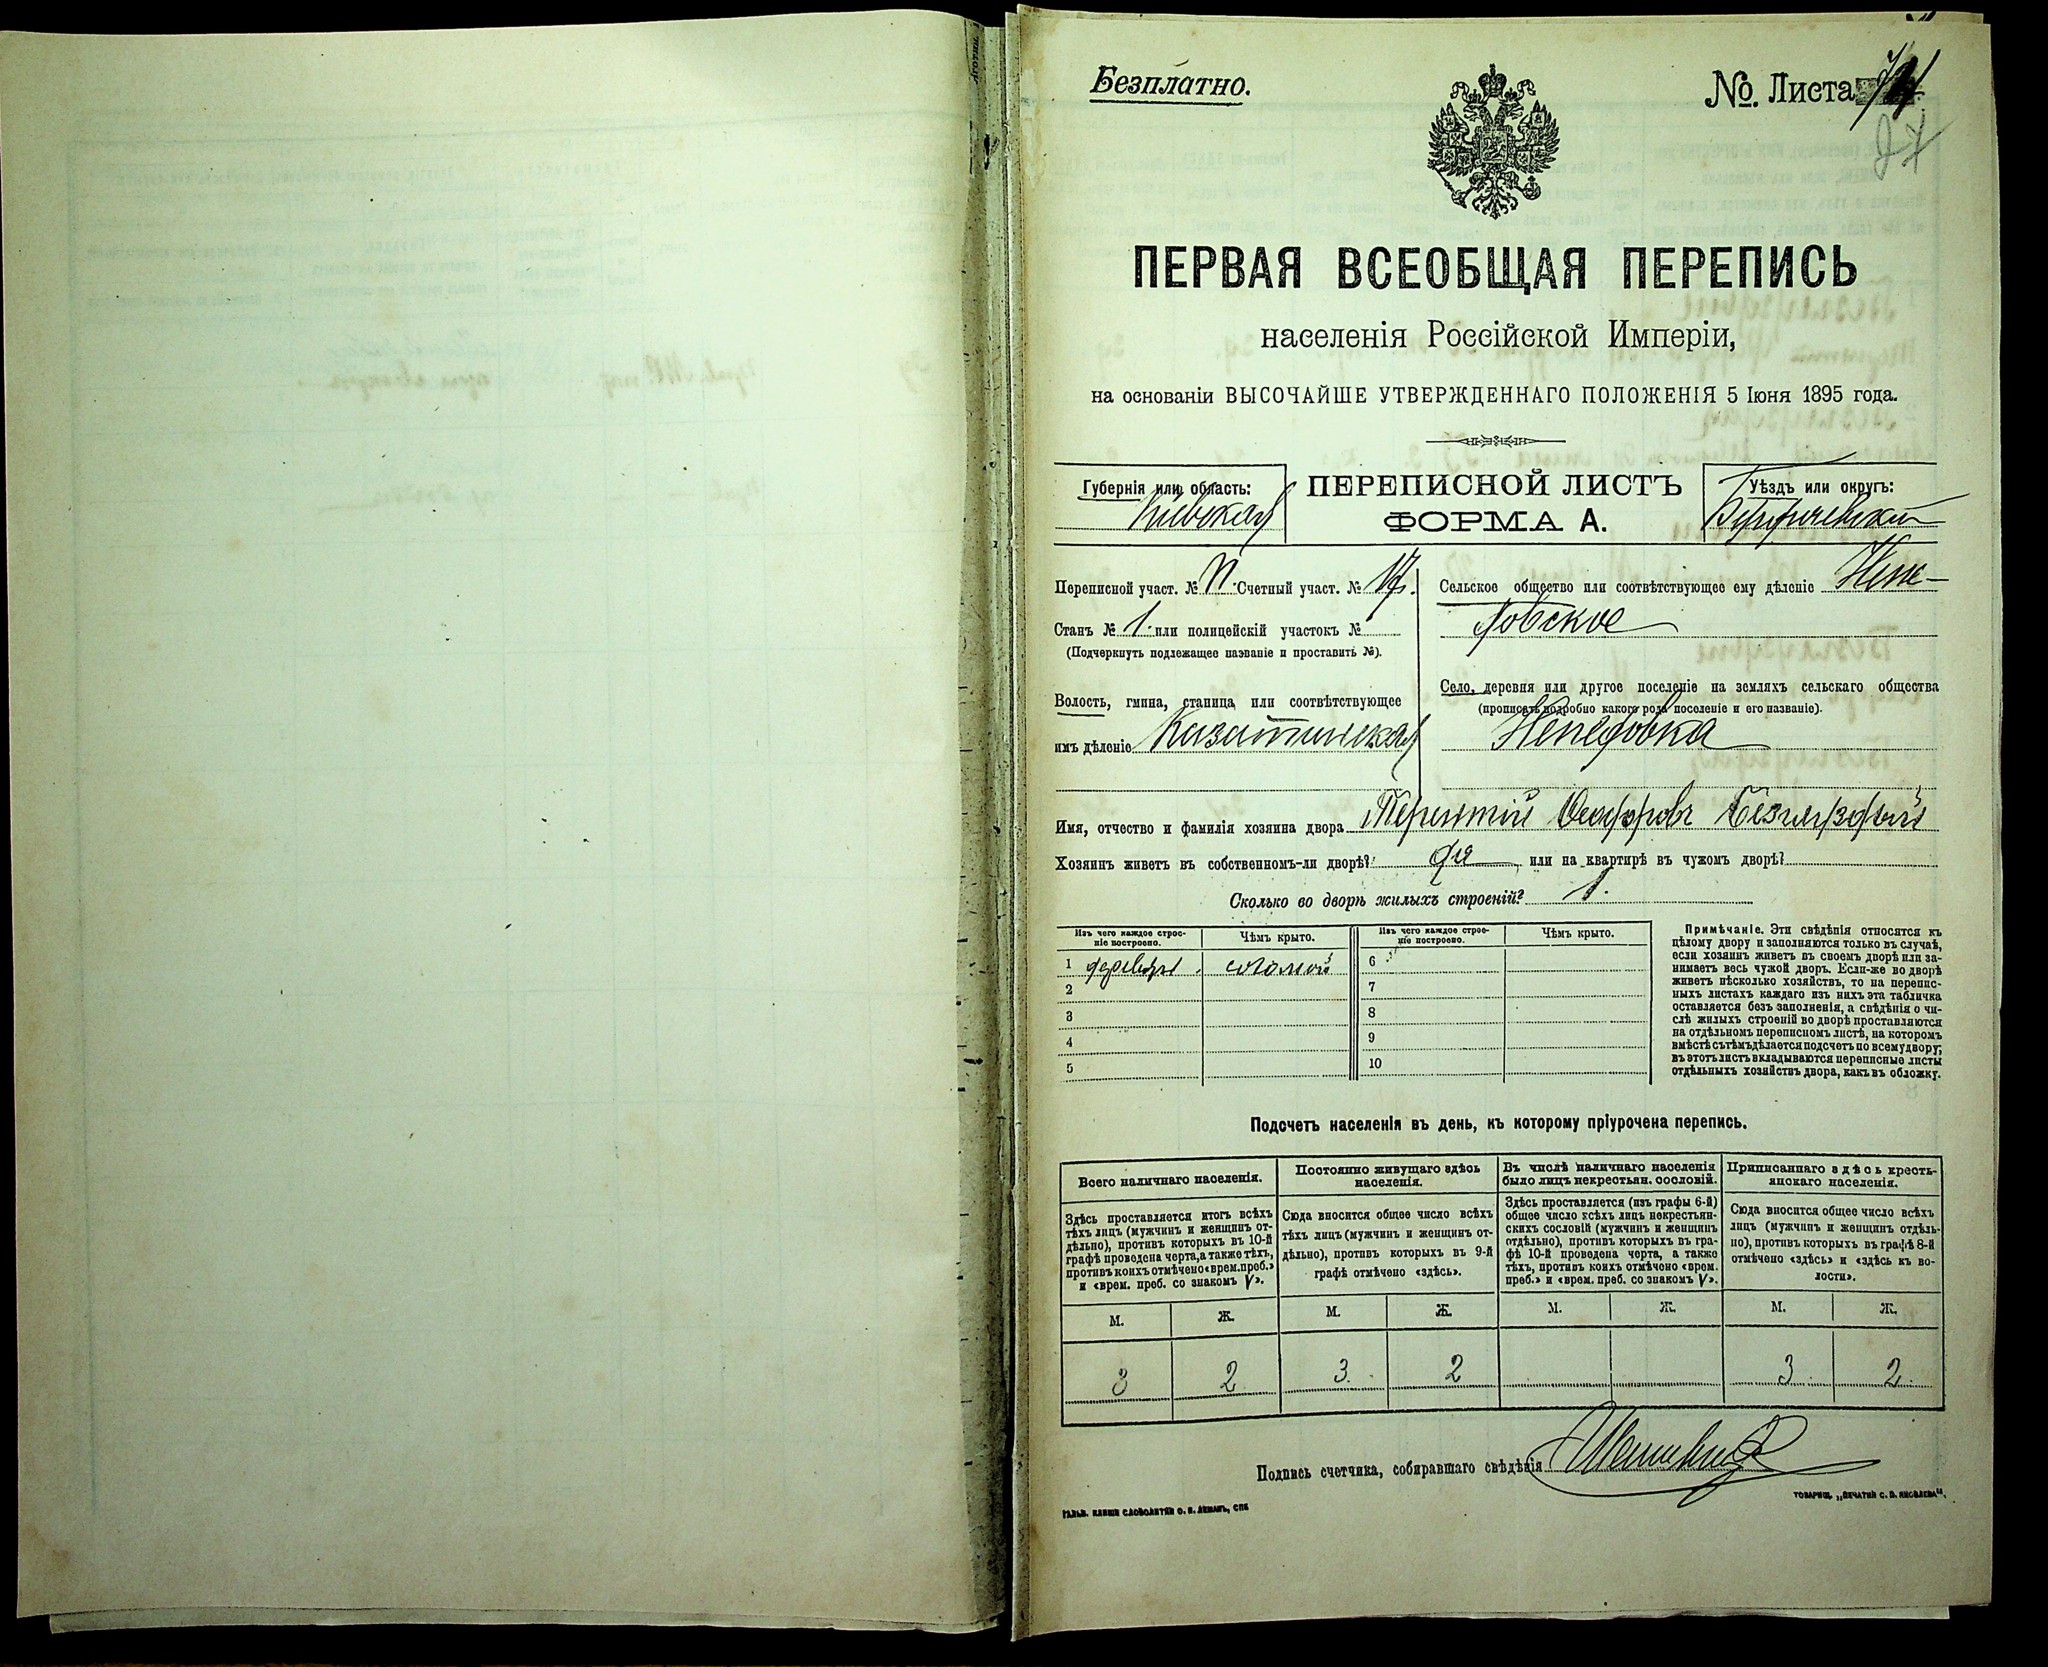 Безплатно.
№. Листа
ПЕРВАЯ ВСЕОБЩАЯ ПЕРЕПИСЬ
населенія Россійской Имперіи,
на основаніи ВЫСОЧАЙШЕ УТВЕРЖДЕННАГО ПОЛОЖЕНІЯ 5 Іюня 1895 года.
Губернія или область:
Кіевская
ПЕРЕПИСНОЙ ЛИСТЪ
ФОРМА А.
Уѣздъ или округъ:
Бердичевскій
Переписной участ. № Счетный участ. № 17.
Станъ № 1. или полицейскій участокъ №
(Подчеркнуть подлежащее названіе и проставить №).
Волость, гмина, станица, или соотвѣтствующее
имъ дѣленіе Казатинская
Сельское общество или соотвѣтствующее ему дѣленіе Непе-
довское
Село, деревня или другое поселеніе на земляхъ сельскаго общества
(прописать подробно какого рода поселеніе и его названіе).
Непедовка
Имя, отчество и фамилія хозяина двора Терентій
Хозяинъ живетъ въ собственномъ-ли дворѣ? да или на квартирѣ въ чужомъ дворѣ?
Сколько во дворѣ жилыхъ строеній? 1.
Изъ чего каждое строе-
ніе построено.
Чѣмъ крыто.
Изъ чего каждое строе-
ніе построено.
Чѣмъ крыто.
1 соломой
2
3
4
5
6
7
8
9
10
Примѣчаніе. Эти свѣдѣнія относятся къ
цѣлому двору и заполняются только въ случаѣ,
если хозяинъ живетъ въ своемъ дворѣ или за-
нимаетъ весь чужой дворъ. Если-же во дворѣ
живетъ нѣсколько хозяйствъ, то на перепис-
ныхъ листахъ каждаго изъ нихъ эта табличка
оставляется безъ заполненія, а свѣдѣнія о чи-
слѣ жилыхъ строеній во дворѣ проставляются
на отдѣльномъ переписномъ листѣ, на которомъ
вмѣстѣ съ тѣмъ дѣлается подсчетъ по всему двору;
въ этотъ листъ вкладываются переписные листы
отдѣльныхъ хозяйствъ двора, какъ въ обложку.
Подсчетъ населенія въ день, къ которому пріурочена перепись.
Всего наличнаго населенія.
Здѣсь проставляется итогъ всѣхъ
тѣхъ лицъ (мужчинъ и женщинъ от-
дѣльно), противъ которыхъ въ 10-й
графѣ проведена черта, а также тѣхъ,
противъ коихъ отмѣчено «врем. преб.»
и «врем. преб. со знакомъ V».
М. Ж.
3 2
Постоянно живущаго здѣсь
населенія.
Сюда вносится общее число всѣхъ
тѣхъ лицъ (мужчинъ и женщинъ от-
дѣльно), противъ которыхъ въ 9-й
графѣ отмѣчено «здѣсь».
М. Ж.
3. 2
Въ числѣ наличнаго населенія
было лицъ некрестьян. сословій.
Здѣсь проставляется (изъ графы 6-й)
общее число всѣхъ лицъ некрестьян-
скихъ сословій (мужчинъ и женщинъ
отдѣльно), противъ которыхъ въ гра-
фѣ 10-й проведена черта, а также
тѣхъ, противъ коихъ отмѣчено «врем.
преб.» и «врем. преб. со знакомъ V».
М. Ж.
Приписаннаго здѣсь кресть-
янскаго населенія.
Сюда вносится общее число всѣхъ
лицъ (мужчинъ и женщинъ отдѣль-
но), противъ которыхъ въ графѣ 8-й
отмѣчено «здѣсь» и «здѣсь къ во-
лости».
М. Ж.
3. 2.
Подпись счетчика, собиравшаго свѣдѣнія
ГАЛЬВ. КЛИШЕ СЛОВОЛИТНИ О. И. ЛЕМАНЪ, СПБ
ТОВАРИЩ. „ПЕЧАТНИ С. П. ЯКОВЛЕВА“.